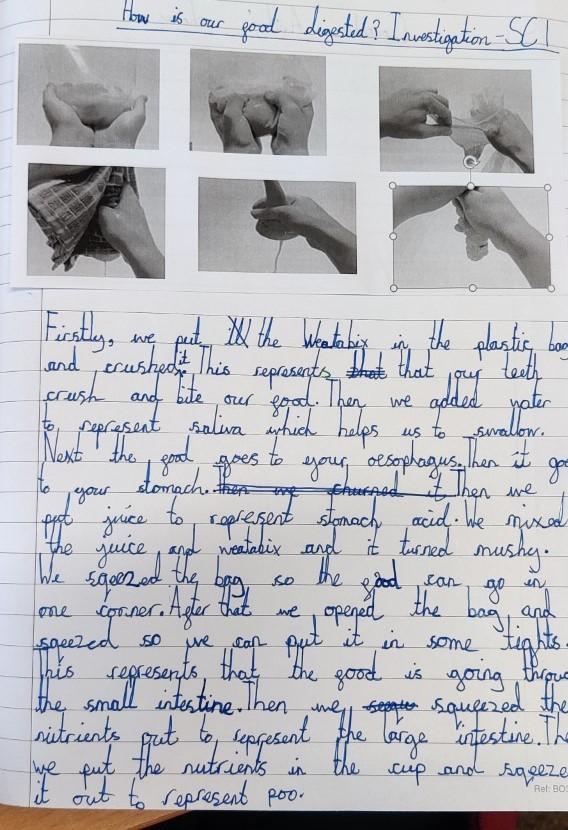 How is our food digested? Investigation - SC1
Firstly, we put the Weatabix in the plastic bag
and crushed it. This represents that that our teeth
crush and bite our food. Then we added water
to represent saliva which helps us to swallow.
Next the food goes to your oesophagus. Then it goe
to your stomach. Then we churned it Then we
put juice to represent stomach acid. We mixed
the juice and weatabix and it turned mushy.
We sqeezed the bag so the food can go in
one corner. After that we opened the bag and
sqeezed so we can put it in some tights.
This represents that the food is going throu
the small intestine. Then we squeezed the
nutrients out to represent the large intestine. The
we put the nutrients in the cup and sqeeze
it out to represent poo.
Ref: BOS